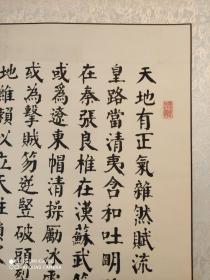 天地有正氣雜然賦流
皇路當清夷含和吐明
在秦張良椎在漢蘇武
或為遼東帽清操勵冰雪
或為擊賊笏逆豎破頭
地維賴以立天柱